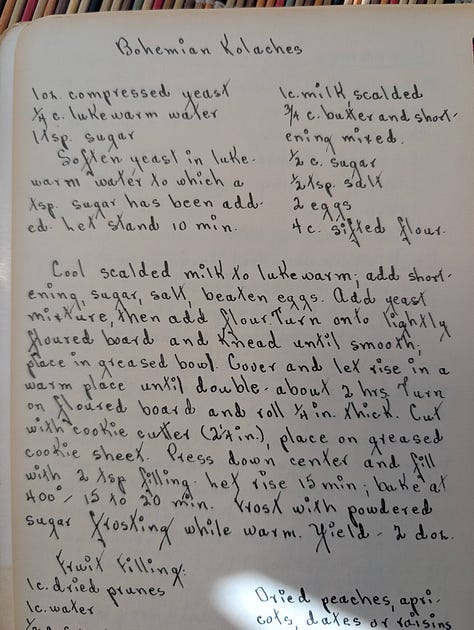 Bohemian Kolaches
1 oz. compressed yeast
¼ c. lukewarm water
1 tsp. sugar
Soften yeast in luke-
warm water to which a
tsp. sugar has been add-
ed. Let stand 10 min.
1 c. milk, scalded
¾ c. butter and short-
ening mixed.
½ c. sugar
½ tsp. salt
2 eggs
4 c. sifted flour.
Cool scalded milk to lukewarm; add short-
ening, sugar, salt, beaten eggs. Add yeast
mixture, then add flour. Turn onto lightly
floured board and knead until smooth;
place in greased bowl. Cover and let rise in a
warm place until double - about 2 hrs. Turn
on floured board and roll ¼ in. thick. Cut
with cookie cutter (2¼ in.), place on greased
cookie sheet. Press down center and fill
with 2 tsp filling. Let rise 15 min; bake at
400° - 15 to 20 min. Frost with powdered
sugar frosting while warm. Yield - 2 doz.
Fruit Filling:
1 c. dried prunes
1 c. water
Dried peaches, apri-
cots, dates or raisins